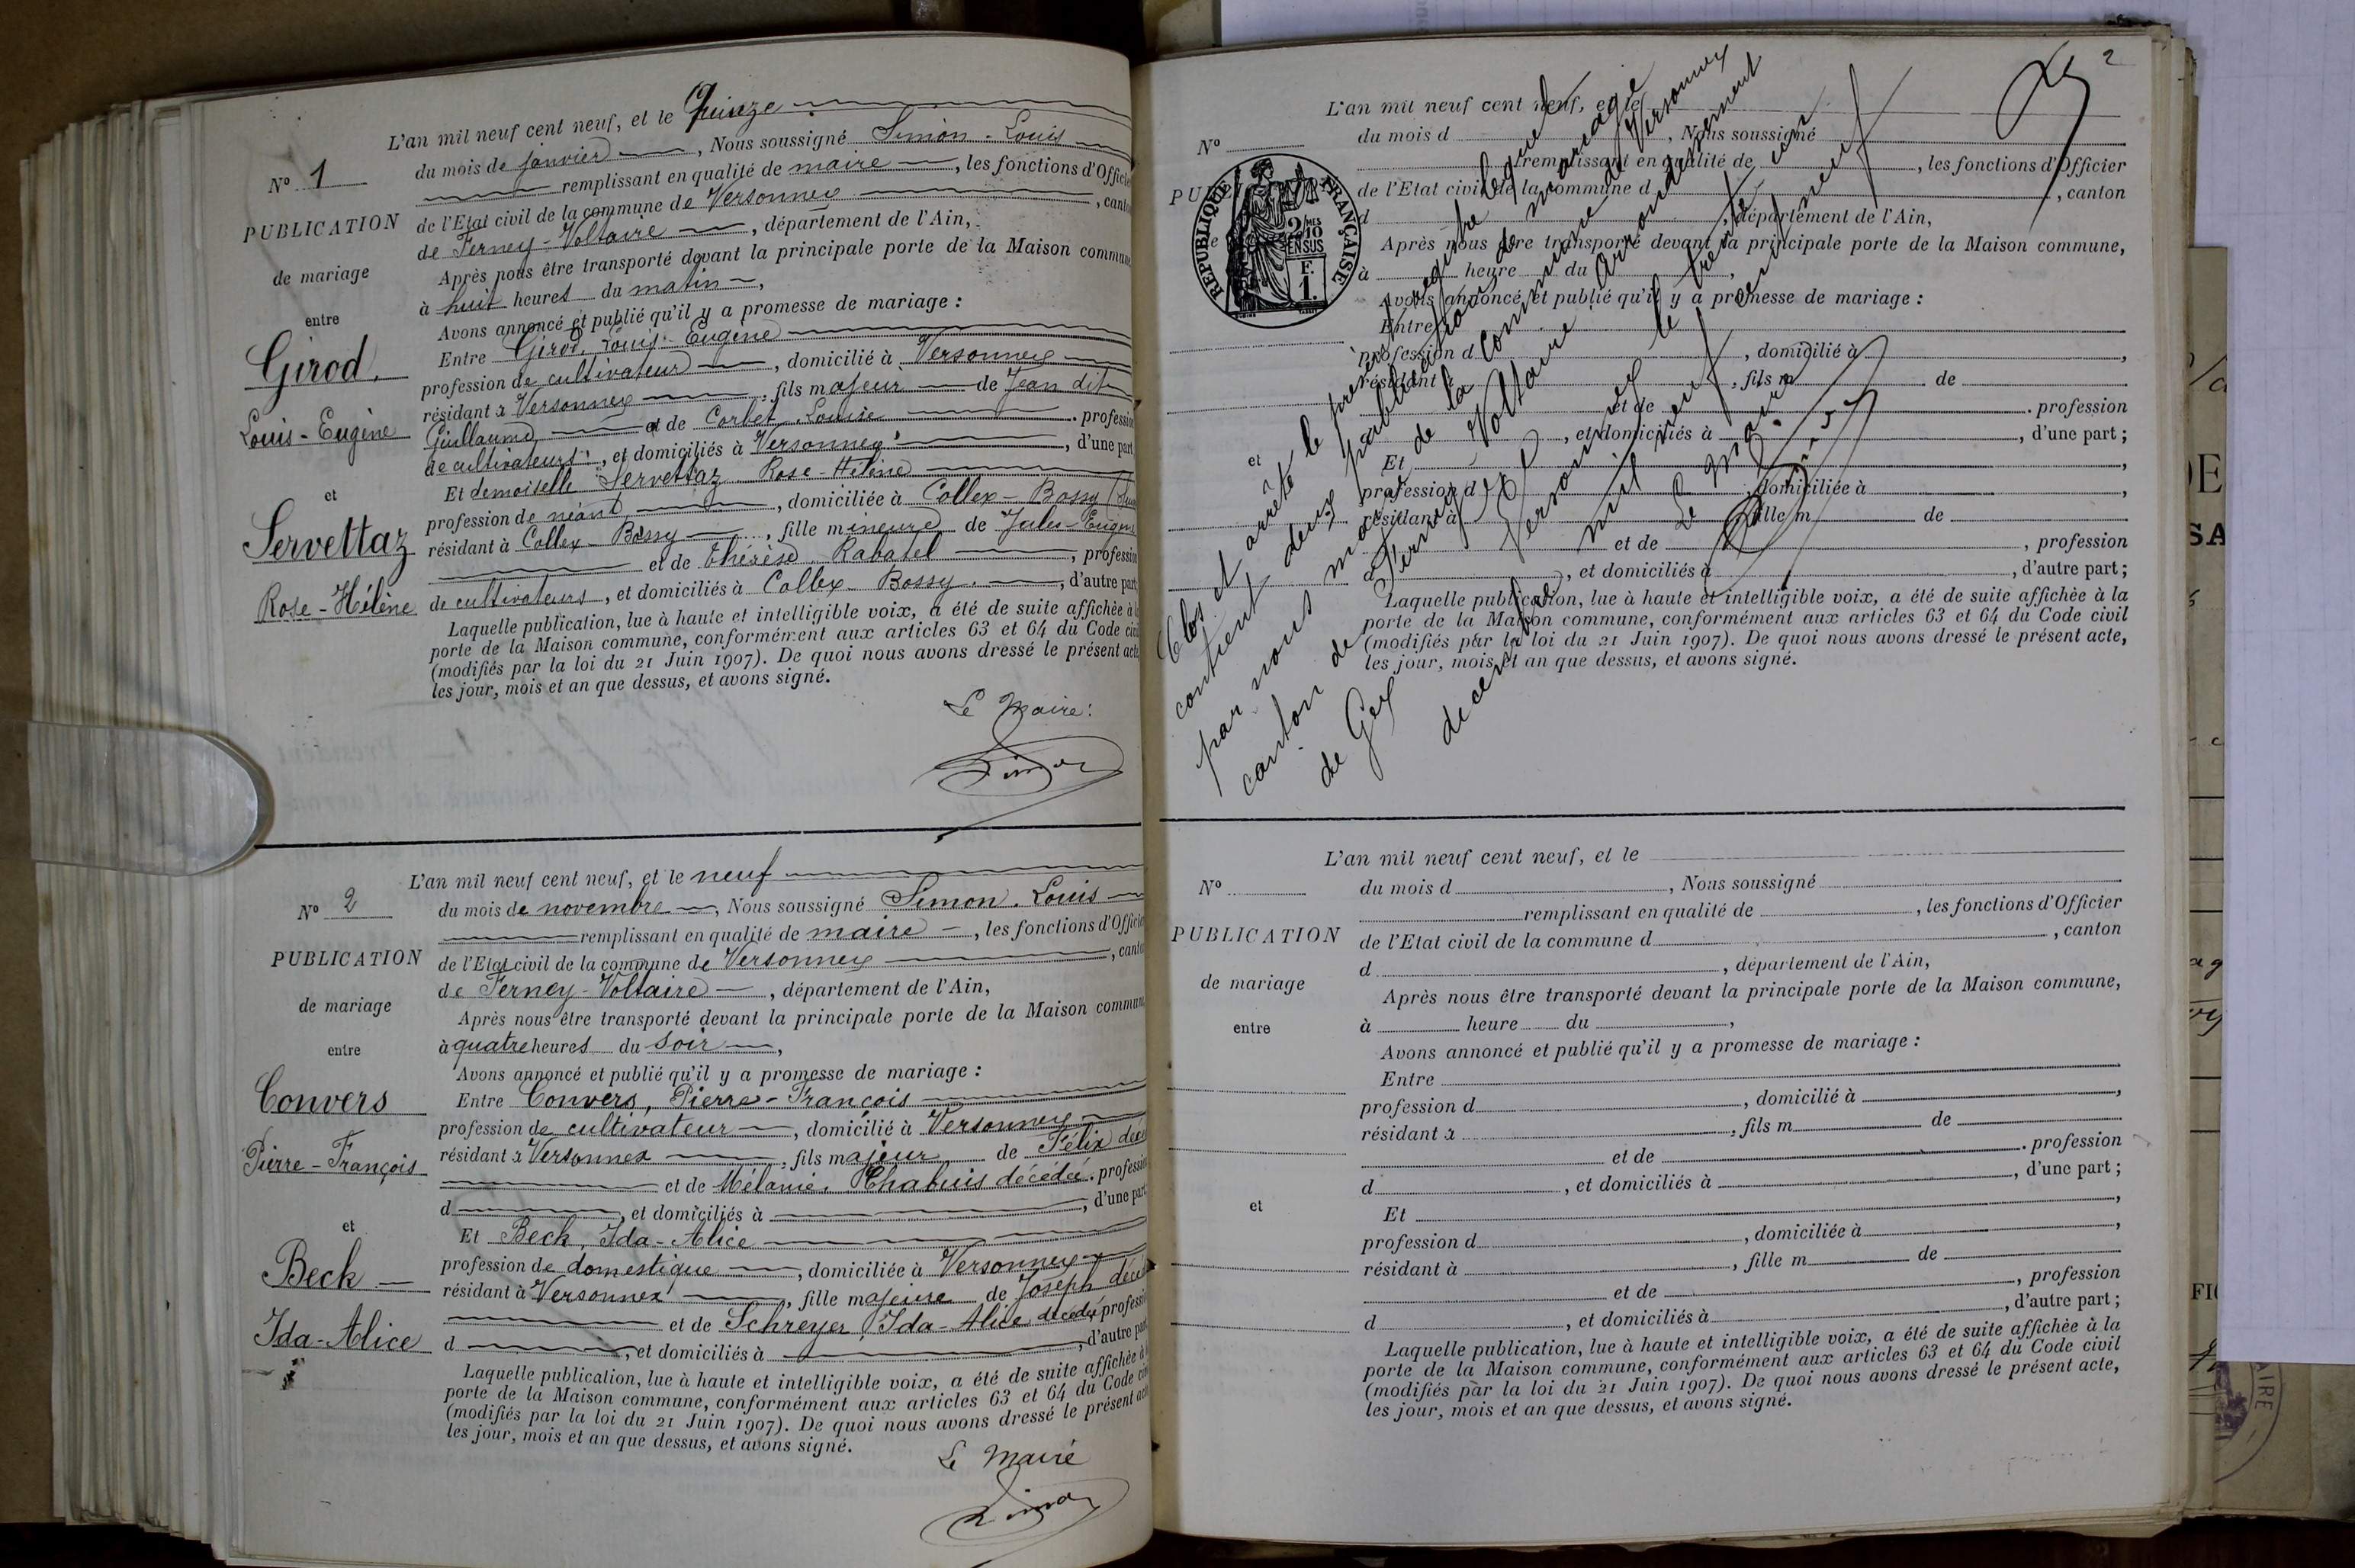 L'an mil neuf cent neuf, et le Quinze
N° 1
du mois de janvier, Nous soussigné Simon - Louis
remplissant en qualité de maire, les fonctions d'Officie
PUBLICATION
de l'Etat civil de la commune de Versonnex, canto
de Ferney-Voltaire, département de l'Ain,
de mariage
Après nous être transporté devant la principale porte de la Maison commune
à huit heures du matin,
entre
Avons annoncé et publié qu'il y a promesse de mariage :
Girod,
Entre Girod, Louis-Eugène
profession de cultivateur, domicilié à Versonnex
résidant à Versonnex, fils majeur de Jean dit
Louis-Eugène
Guillaume et de Corbet Louise. profession
de cultivateurs, et domiciliés à Versonnex, d'une part
et
Et demoiselle Servettaz Rose-Hélène
Servettaz
profession de néant, domiciliée à Collex-Bossy
résidant à Collex-Bossy, fille mineure de Jules-Eugène
et de Thérèse Rabatel, profession
Rose-Hélène
de cultivateurs, et domiciliés à Collex-Bossy, d'autre part
Laquelle publication, lue à haute et intelligible voix, a été de suite affichée à la
porte de la Maison commune, conformément aux articles 63 et 64 du Code civi
(modifiés par la loi du 21 Juin 1907). De quoi nous avons dressé le présent acte
les jour, mois et an que dessus, et avons signé.
Le Maire:
Simon
L'an mil neuf cent neuf, et le neuf
N° 2
du mois de novembre, Nous soussigné Simon. Louis
remplissant en qualité de maire, les fonctions d'Officie
PUBLICATION
de l'Etat civil de la commune de Versonnex, canto
de Ferney-Voltaire, département de l'Ain,
de mariage
Après nous être transporté devant la principale porte de la Maison commune
entre
à quatre heures du soir,
Avons annoncé et publié qu'il y a promesse de mariage :
Convers
Entre Convers, Pierre-François
profession de cultivateur, domicilié à Versonnex
Pierre-François
résidant à Versonnex, fils majeur de Félix décé
et de Mélanie. Chabuis décédée. profession
d, et domiciliés à, d'une part
et
Et Beck, Ida-Alice
Beck
profession de domestique, domiciliée à Versonnex
résidant à Versonnex, fille majeure de Joseph décé
et de Schreyer, Ida-Alice décédée, professio
Ida-Alice
d, et domiciliés à, d'autre part
Laquelle publication, lue à haute et intelligible voix, a été de suite affichée à l
porte de la Maison commune, conformément aux articles 63 et 64 du Code civ
(modifiés par la loi du 21 Juin 1907). De quoi nous avons dressé le présent act
les jour, mois et an que dessus, et avons signé.
Le Maire
Simon
2
L'an mil neuf cent neuf, et le
N°
du mois d, Nous soussigné
remplissant en qualité de, les fonctions d'Officier
de l'Etat civil de la commune d, canton
d, département de l'Ain,
RÉPUBLIQUE FRANÇAISE
2 MES
10
EN SUS
F.
1.
Après nous être transporté devant la principale porte de la Maison commune,
à heure du,
Avons annoncé et publié qu'il y a promesse de mariage :
Entre
profession d, domicilié à,
résidant à, fils m de
et de. profession
d, et domiciliés à, d'une part ;
et
Et,
profession d, domiciliée à,
résidant à, fille m de
et de, profession
d, et domiciliés à, d'autre part ;
Laquelle publication, lue à haute et intelligible voix, a été de suite affichée à la
porte de la Maison commune, conformément aux articles 63 et 64 du Code civil
(modifiés par la loi du 21 Juin 1907). De quoi nous avons dressé le présent acte,
les jour, mois et an que dessus, et avons signé.
Clos et arrêté le présent registre lequel
contient deux publications de mariage
par nous maire de la commune de Versonnex
canton de Ferney-Voltaire arrondissement
de Gex
Versonnex le trente et un
decembre mil neuf cent neuf
Le Maire
Simon
L'an mil neuf cent neuf, et le
N°
du mois d, Nous soussigné
remplissant en qualité de, les fonctions d'Officier
PUBLICATION
de l'Etat civil de la commune d, canton
d, département de l'Ain,
de mariage
Après nous être transporté devant la principale porte de la Maison commune,
entre
à heure du,
Avons annoncé et publié qu'il y a promesse de mariage :
Entre
profession d, domicilié à,
résidant à, fils m de
et de. profession
d, et domiciliés à, d'une part ;
et
Et,
profession d, domiciliée à,
résidant à, fille m de
et de, profession
d, et domiciliés à, d'autre part ;
Laquelle publication, lue à haute et intelligible voix, a été de suite affichée à la
porte de la Maison commune, conformément aux articles 63 et 64 du Code civil
(modifiés par la loi du 21 Juin 1907). De quoi nous avons dressé le présent acte,
les jour, mois et an que dessus, et avons signé.